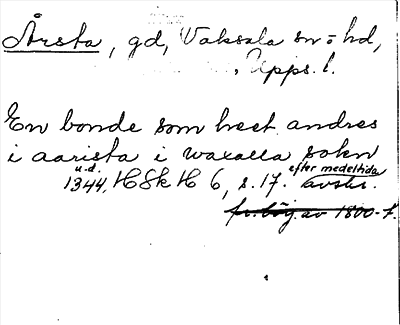 Årsta, gd, Vaksala sn o hd,
Upps. l.
En bonde som heet andres
i aarista i waxalla sokn
u.d. efter medeltida
1344, HSkH 6, s. 17. avskr.
fr. börj. av 1800-t.